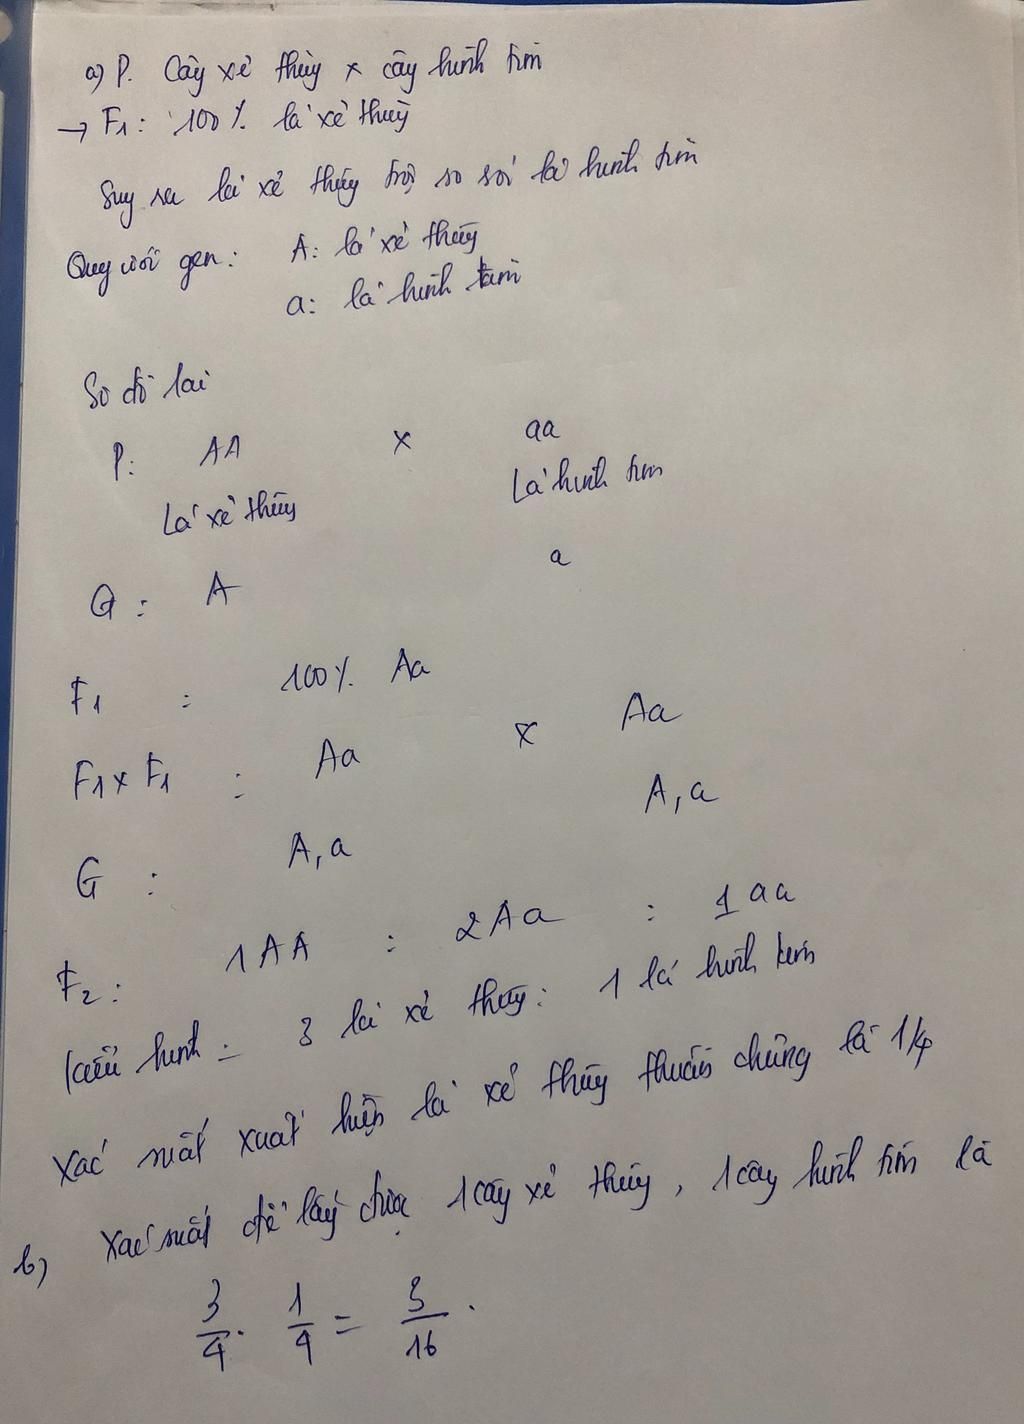 a) P. Cây xẻ thùy x cây hình tim
→ F1: 100% lá xẻ thùy
Suy ra lá xẻ thùy trội so với lá hình tim
Quy ước gen: A: lá xẻ thùy
a: lá hình tim
Sơ đồ lai
P: AA x aa
Lá xẻ thùy Lá hình tim
G: A a
F1 : 100% Aa
F1 x F1 : Aa x Aa
G : A, a A, a
F2: 1AA : 2Aa : 1aa
kiểu hình: 3 lá xẻ thùy: 1 lá hình tim
Xác suất xuất hiện lá xẻ thùy thuần chủng là 1/4
b) Xác suất để lấy được 1 cây xẻ thùy, 1 cây hình tim là
3/4 . 1/4 = 3/16 .